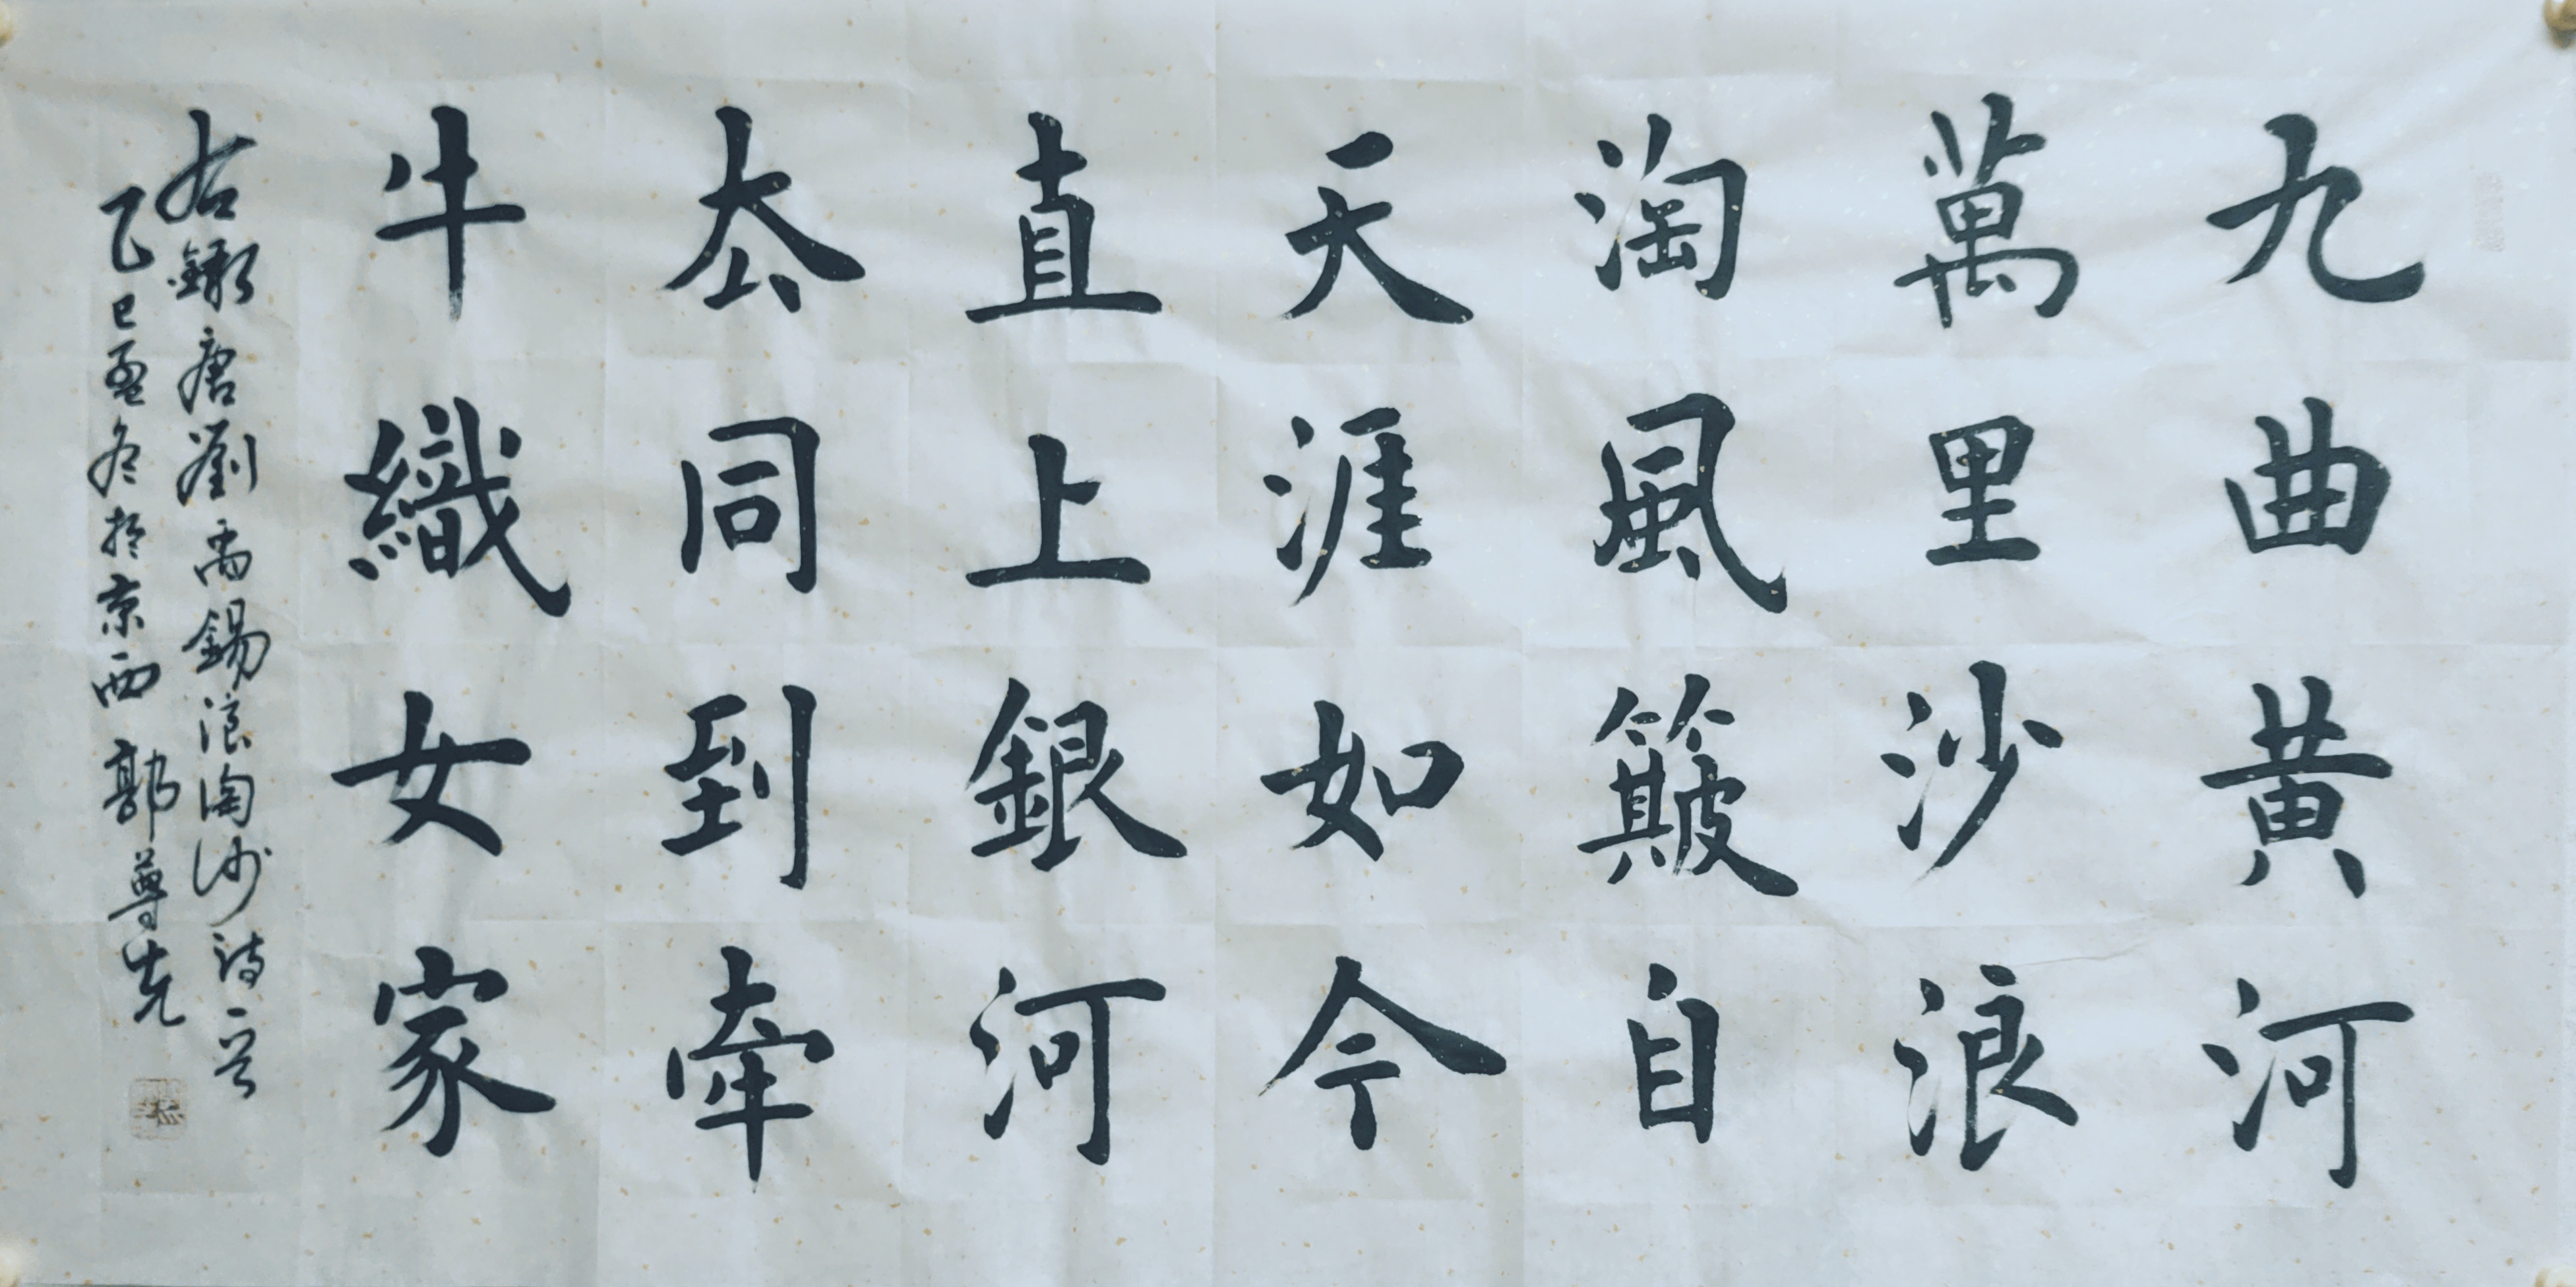 九曲黄河
萬里沙浪
淘風簸自
天涯如今
直上銀河
厺同到牽
牛織女家
右録唐劉禹錫浪淘沙詩一首
乙巳孟冬於京西郭尊先